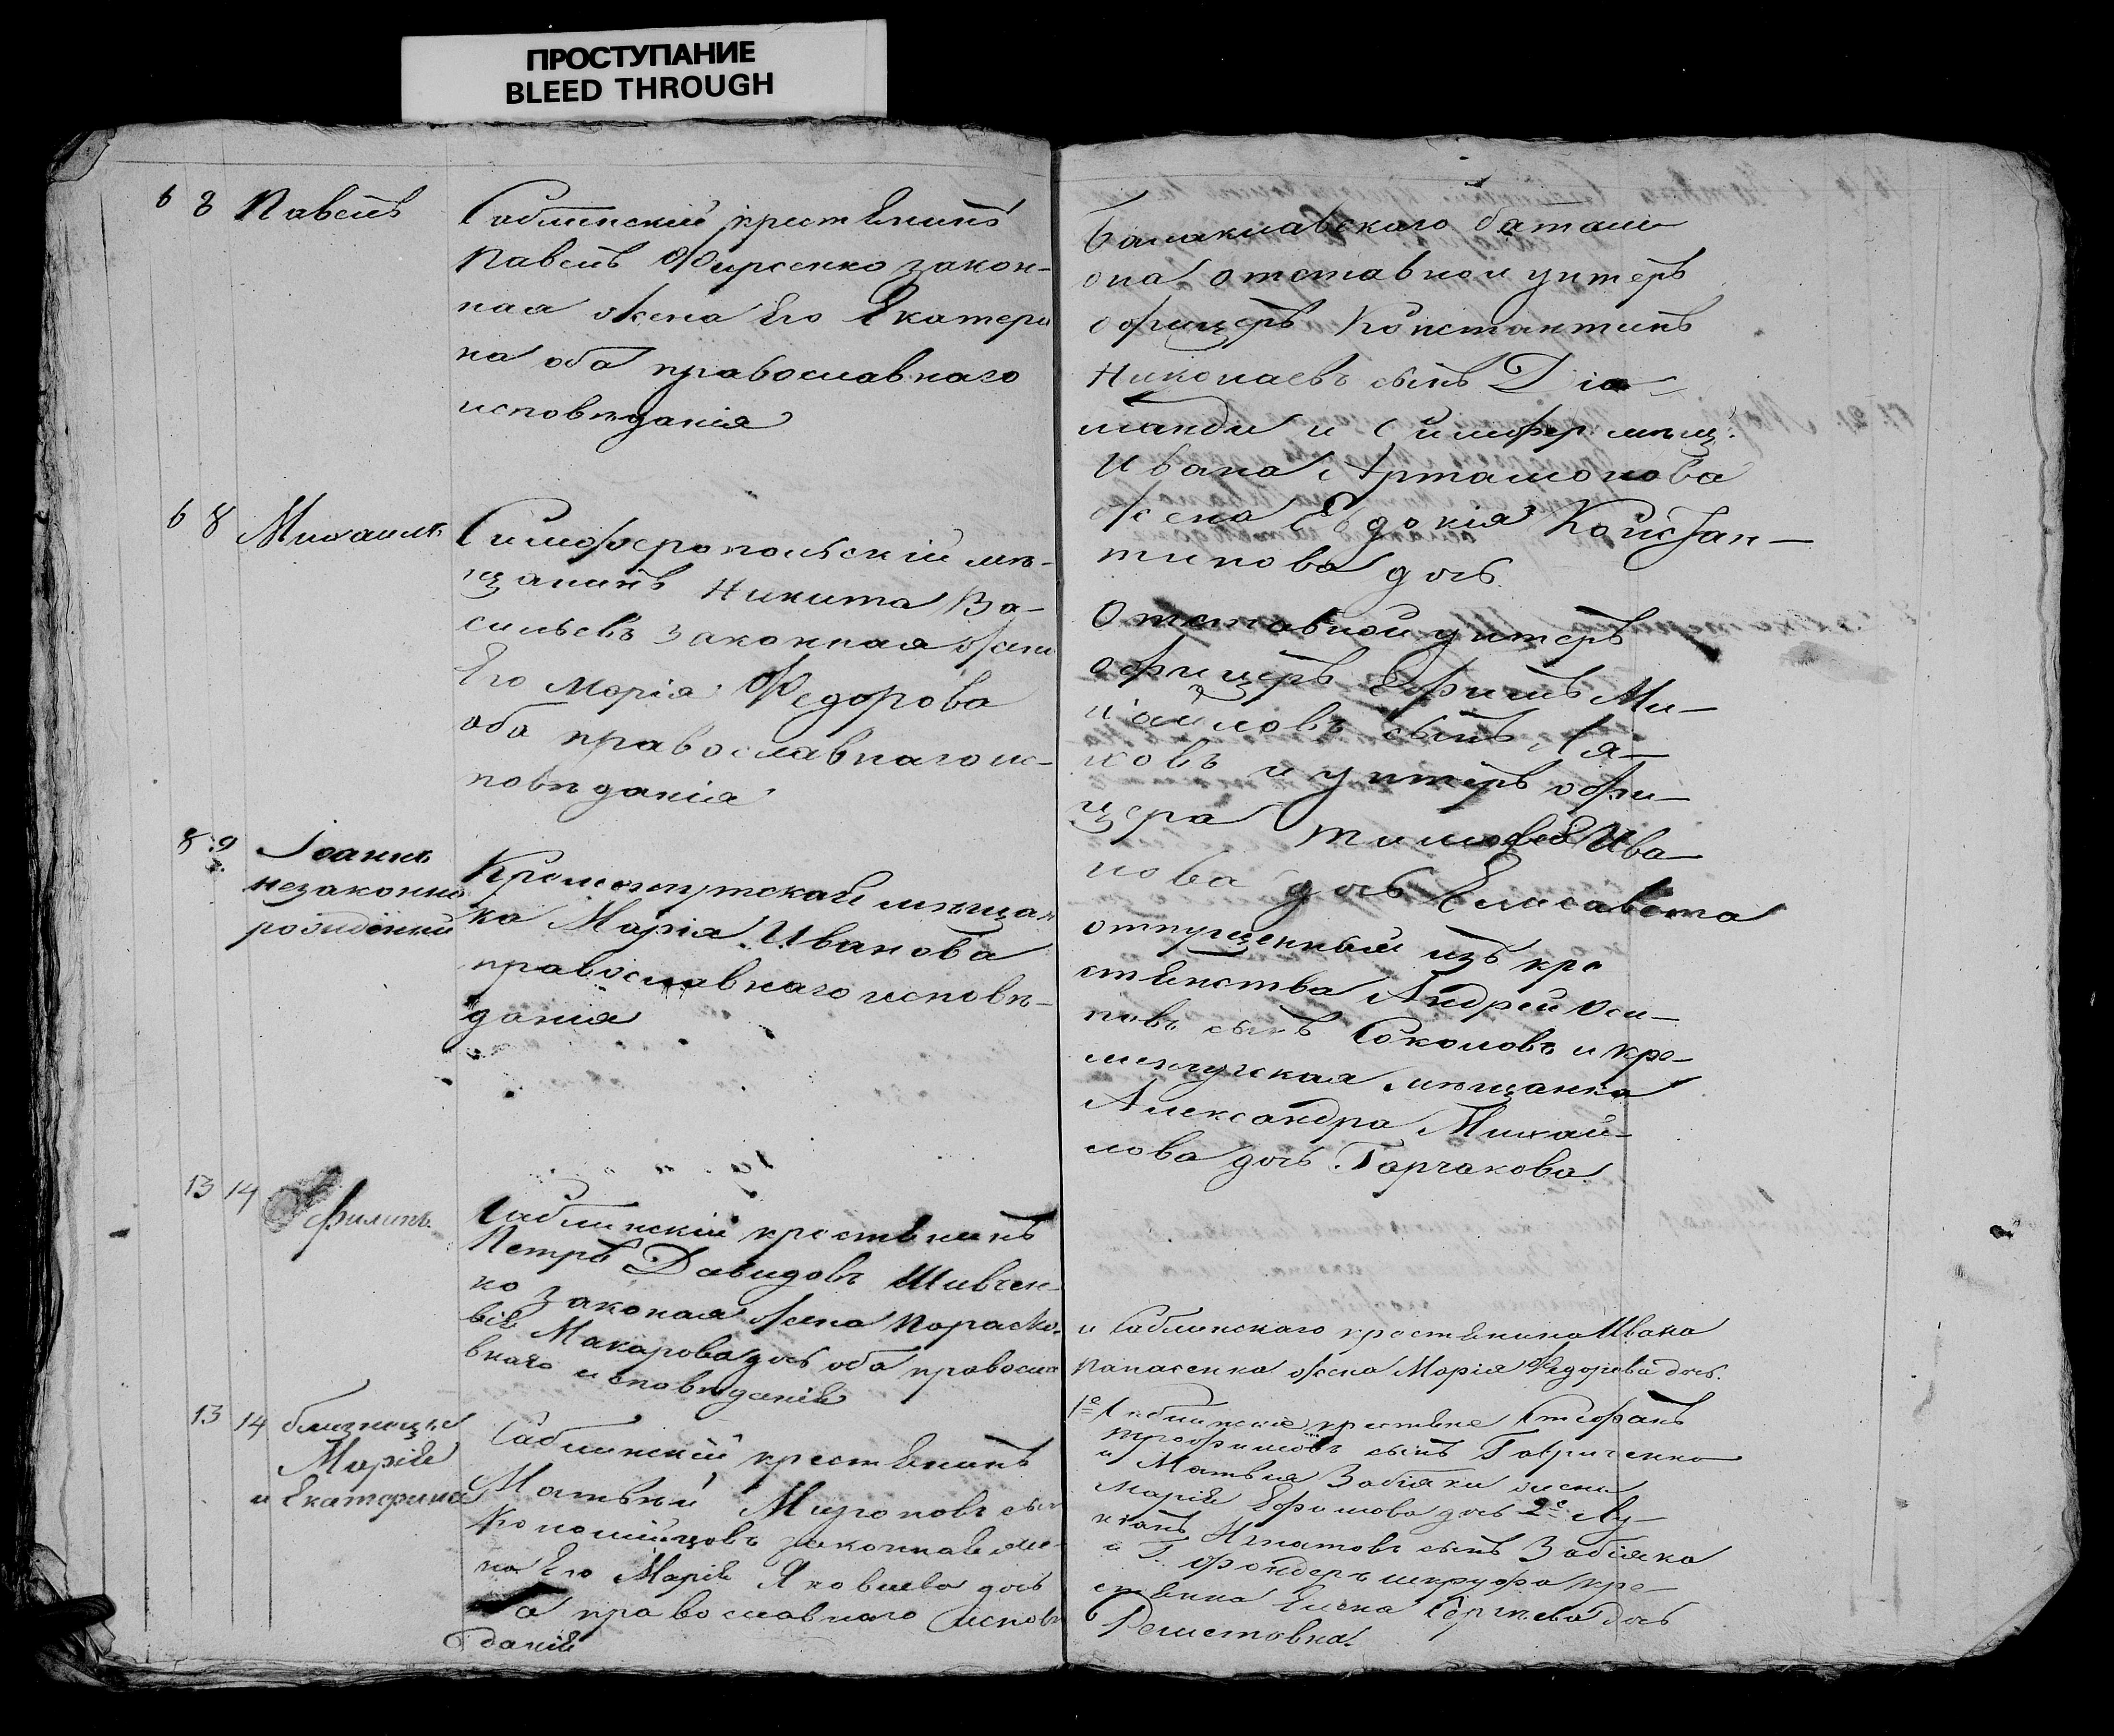 ПРОСТУПАНИЕ
BLEED THROUGH
6 8 Павелъ
Саблинскій крестьянинъ
Павелъ Фирсенко закон-
ная жена Его Екатери
на оба православнаго
исповѣданія
6 8 Михаилъ
Симферопольскій мѣ-
щанинъ Никита Ва-
сильевъ законная жена
Его Марія Федорова
оба православнаго ис-
повѣданія
8 9 Іоаннъ
незаконно
рожденный
мѣщан
ка Марія Иванова
православнаго исповѣ-
данія
13 14 Филипъ
Саблинскій крестьянинъ
Петръ Давидовъ Шивчен-
ко законая жена Параске-
вія Макарова дочь оба правосла
внаго исповѣданія
13 14 близнецы
Марія
и Екатерина
Саблинскій крестьянинъ
Матвѣй Мироновъ сын
законная же-
на Его Марія Яковлева дочь
православнаго исповѣ
данія
Балаклавскаго батали
она отставной унтеръ
офицеръ Константинъ
Николаевъ сынъ Діа
манди и Симфер. мѣщ:
Ивана Артамонова
жена Евдокія Констан-
тинова дочь
Отставной унтеръ
офицеръ Ефимъ Ми-
хайловъ сынъ Ля-
ховъ и унтеръ офи-
цера Тимофея Ива
нова дочь Елисавета
отпущенный изъ кре
стьянства Андрей Оси-
повъ сынъ Соколовъ и кре-
менчугская мѣщанка
Александра Михай-
лова дочь Горчакова
и Саблинскаго крестьянина Ивана
Панасенка жена Марія Федорова дочь.
1е Саблинскіе крестьяне Стефанъ
Трофимовъ сынъ Гавриченко
и Матвѣя Забіяки жена
Марія Ефимова дочь 2е Лу-
кіанъ Игнатовъ сынъ Забіяка
и Г. фондеръ кре-
стьянка Елена Сергѣева дочь